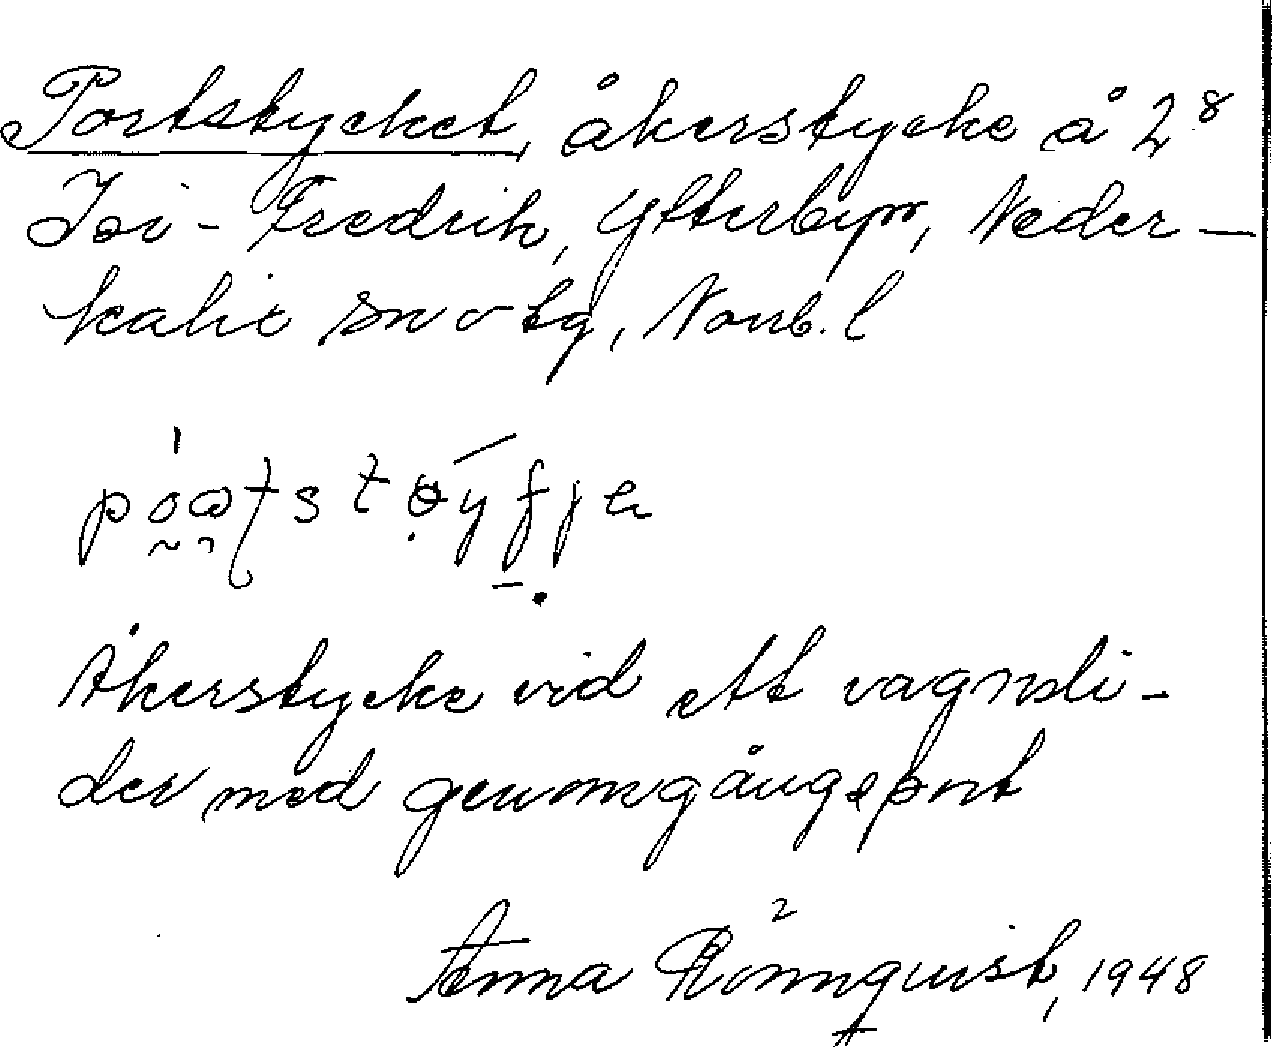 Portstycket, åkerstycke å 2⁸
Isi-Fredrik, Ytterbyn, Neder-
kalix sn o tg, Norrb. l
Åkerstycke vid ett vagnsli-
der med genomgångsport
Anna Rönnquist, 1948